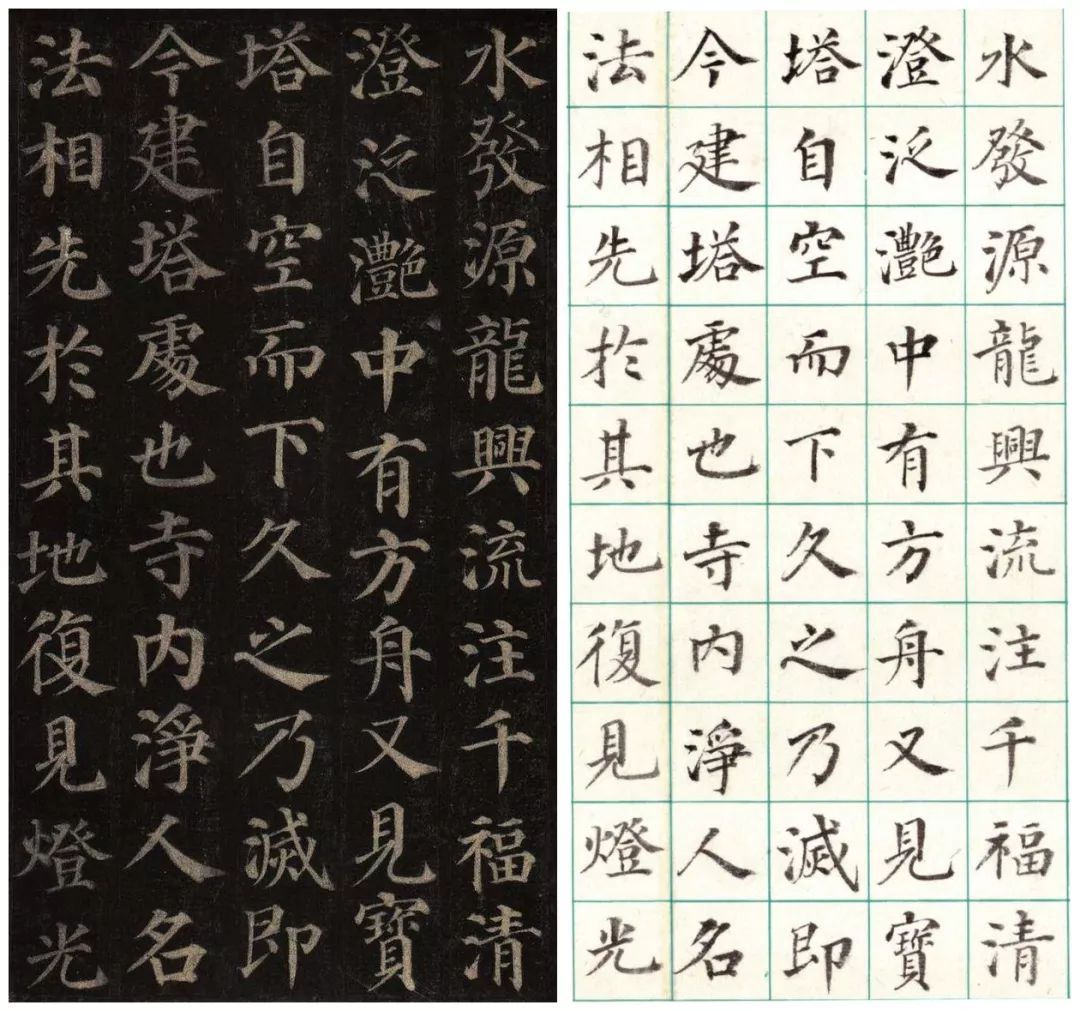 水發源龍興流注千福清
澄泛灔中有方舟又見寶
塔自空而下久之乃滅即
今建塔處也寺內淨人名
法相先於其地復見燈光
水發源龍興流注千福清
澄泛灔中有方舟又見寶
塔自空而下久之乃滅即
今建塔處也寺內淨人名
法相先於其地復見燈光